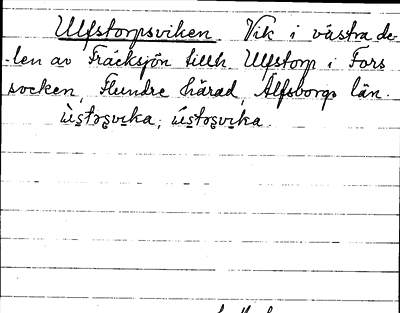 Ulfstorpsviken. Vik i västra de-
-len av Träcksjön tillh. Ulfstorp i Fors
socken, Flundre härad, Älfsborgs län.
ùstɔşvika, ústɔşvika.